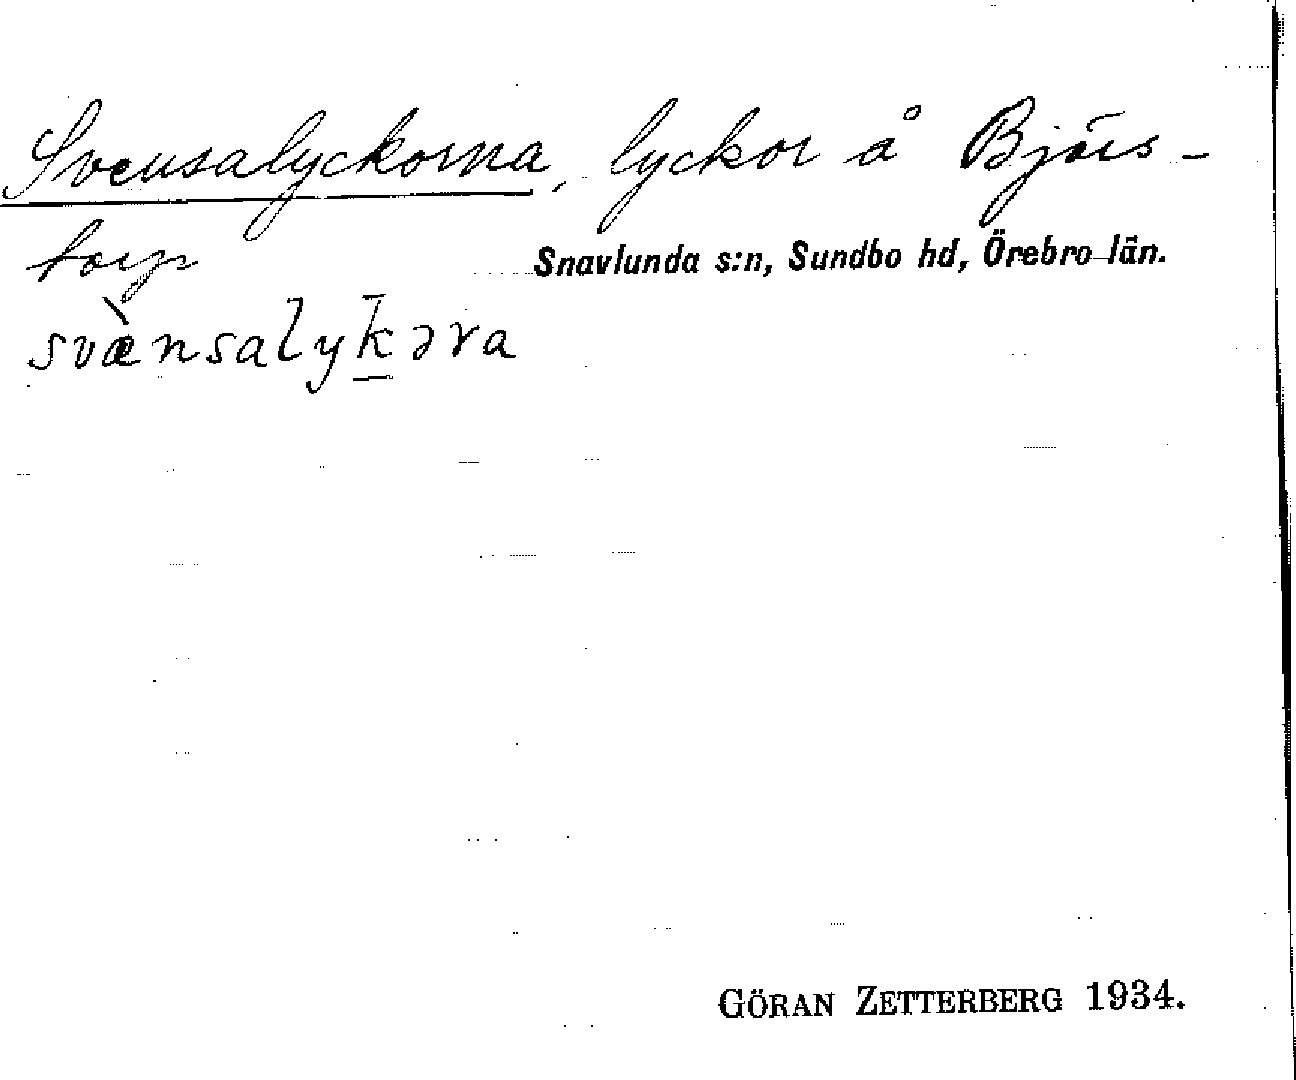 Svensalyckorna, lyckor å Björs-
torp
Snavlunda s:n, Sundbo hd, Örebro län.
svæ̀nsalyk̲̄əra
GÖRAN ZETTERBERG 1934.